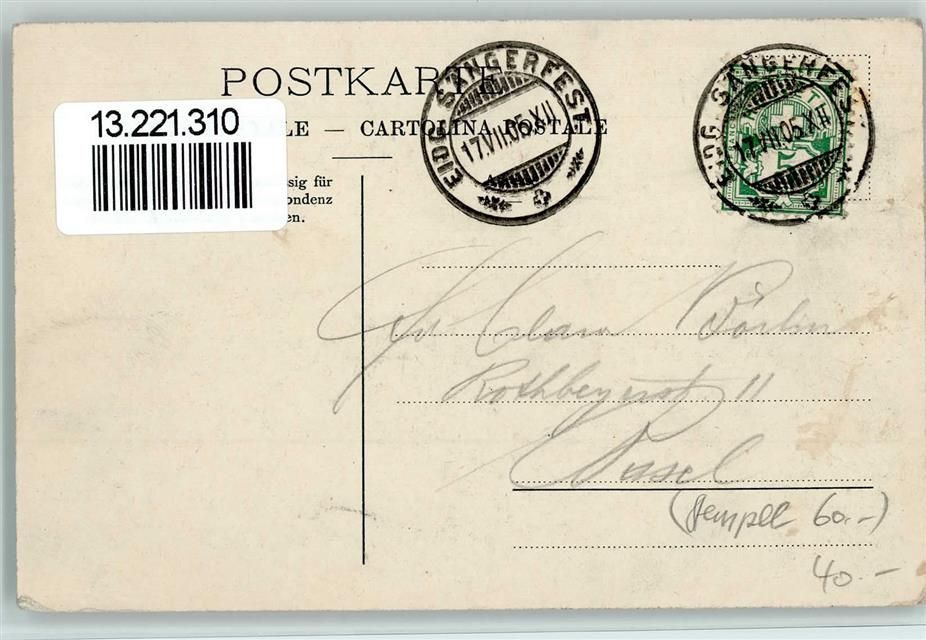 POSTKARTE
13.221.310
LE — CARTOLINA POSTALE
sig für
ondenz
en.
EIDG. SÄNGERFEST
17.VII.05.XII
EIDG. SÄNGERFEST
17.VII.05.XII
Clara
11
Basel
(Stempel 60.-)
40.-